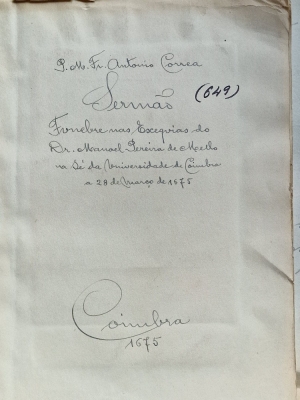 P. M. Fr. Antonio Correa
Sermão (649)
Funebre nas Exequias do
Dr. Manoel Pereira de Mello
na Sé da Universidade de Coimbra
a 28 de Março de 1675
Coimbra
1675